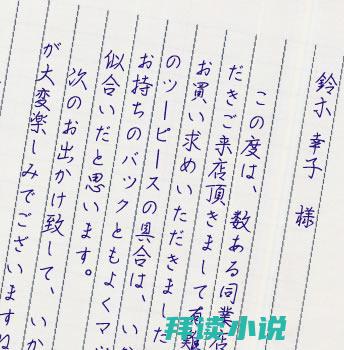 鈴木 幸子 様
この度は、数ある同業店
だきご来店頂きまして有難
お買い求めいただきました
のツーピースの具合は、い
お持ちのバックともよくマッ
似合いだと思います。
次のお出かけ致して、いか
が大変楽しみでございますね
拜读小说